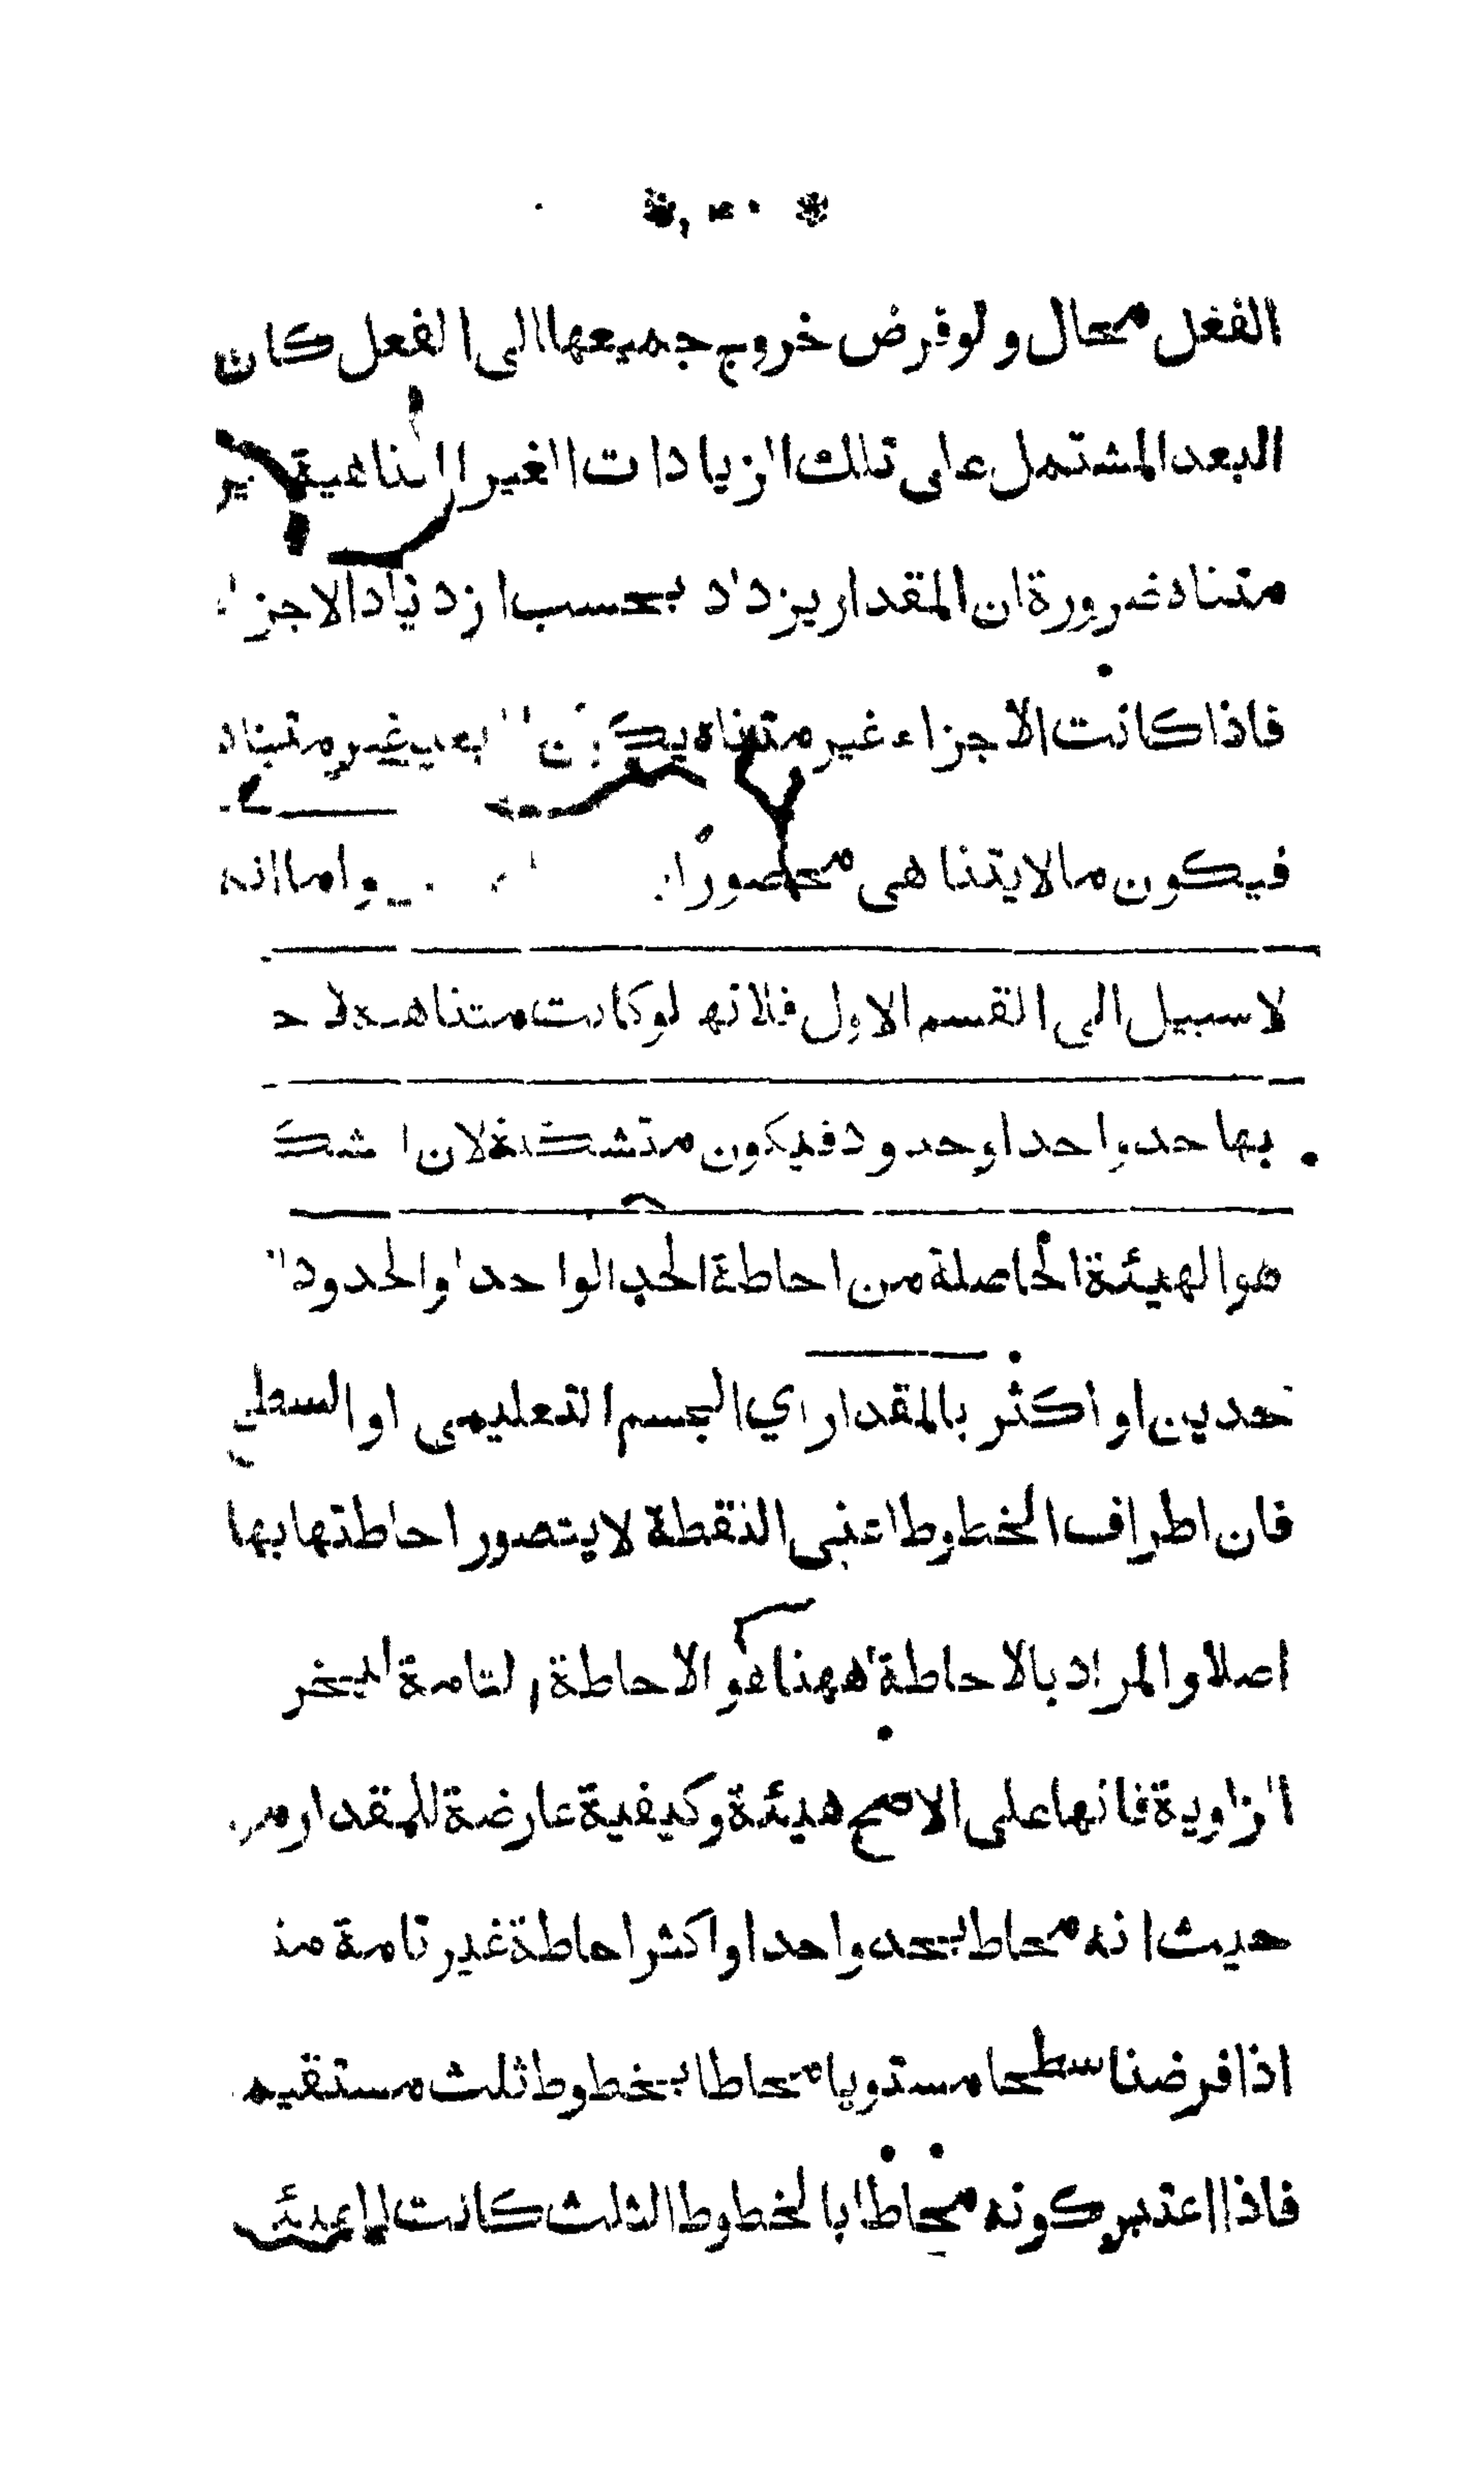 الفعل محال ولو فرض خروج جميعها الى الفعل كان
البعد المشتمل على تلك الزيادات الغير المتناهية غير
متناه ضرورة ان المقدار يزداد بحسب ازدياد الاجزاء
فاذا كانت الاجزاء غير متناه يكون البعد غير متناه
فيكون مالايتناهى محصورا واما انه
لاسبيل الى القسم الاول فلانها لوكانت متناهية لا
بها حد واحد او حدود فيكون متشكلة لان الشكل
هو الهيئة الحاصلة من احاطة الحد الواحد او الحدود
حدين او أكثر بالمقدار اي الجسم التعليمى او السطح
فان اطراف الخطوط اعنى النقطة لايتصور احاطتها بها
اصلا والمراد بالاحاطة ههنا هو الاحاطة التامة ليخرج
الزاوية فانها على الاصح هيئة وكيفية عارضة للمقدار من
حيث انه محاط بحد واحد او اكثر احاطة غير تامة
اذا فرضنا سطحا مستويا محاطا بخطوط ثلث مستقيمة
فاذا اعتبر كونه محاطا بالخطوط الثلث كانت